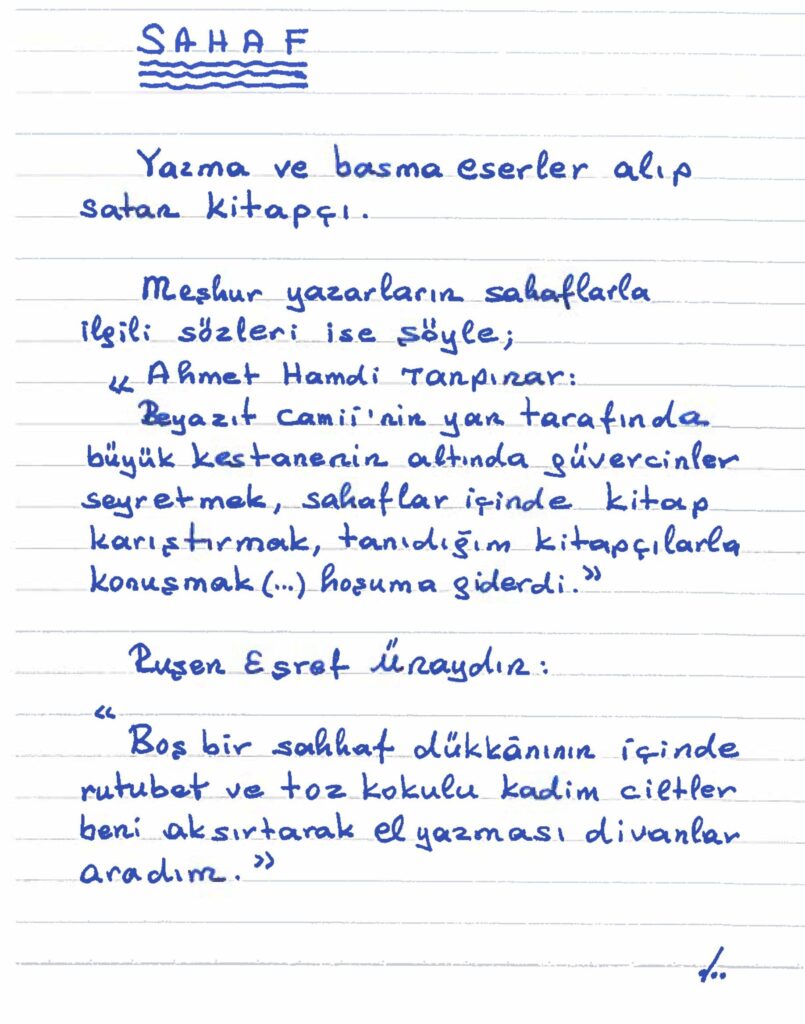 SAHAF
Yazma ve basma eserler alıp
satan kitapçı.
Meşhur yazarların sahaflarla
ilgili sözleri ise şöyle;
« Ahmet Hamdi Tanpınar:
Beyazıt Camii'nin yan tarafında
büyük kestanenin altında güvercinler
seyretmek, sahaflar içinde kitap
karıştırmak, tanıdığım kitapçılarla
konuşmak (...) hoşuma giderdi.»
Ruşen Eşref Ünaydın:
«
Boş bir sahhaf dükkânının içinde
rutubet ve toz kokulu kadim ciltler
beni aksırtarak el yazması divanlar
aradım.»
./..